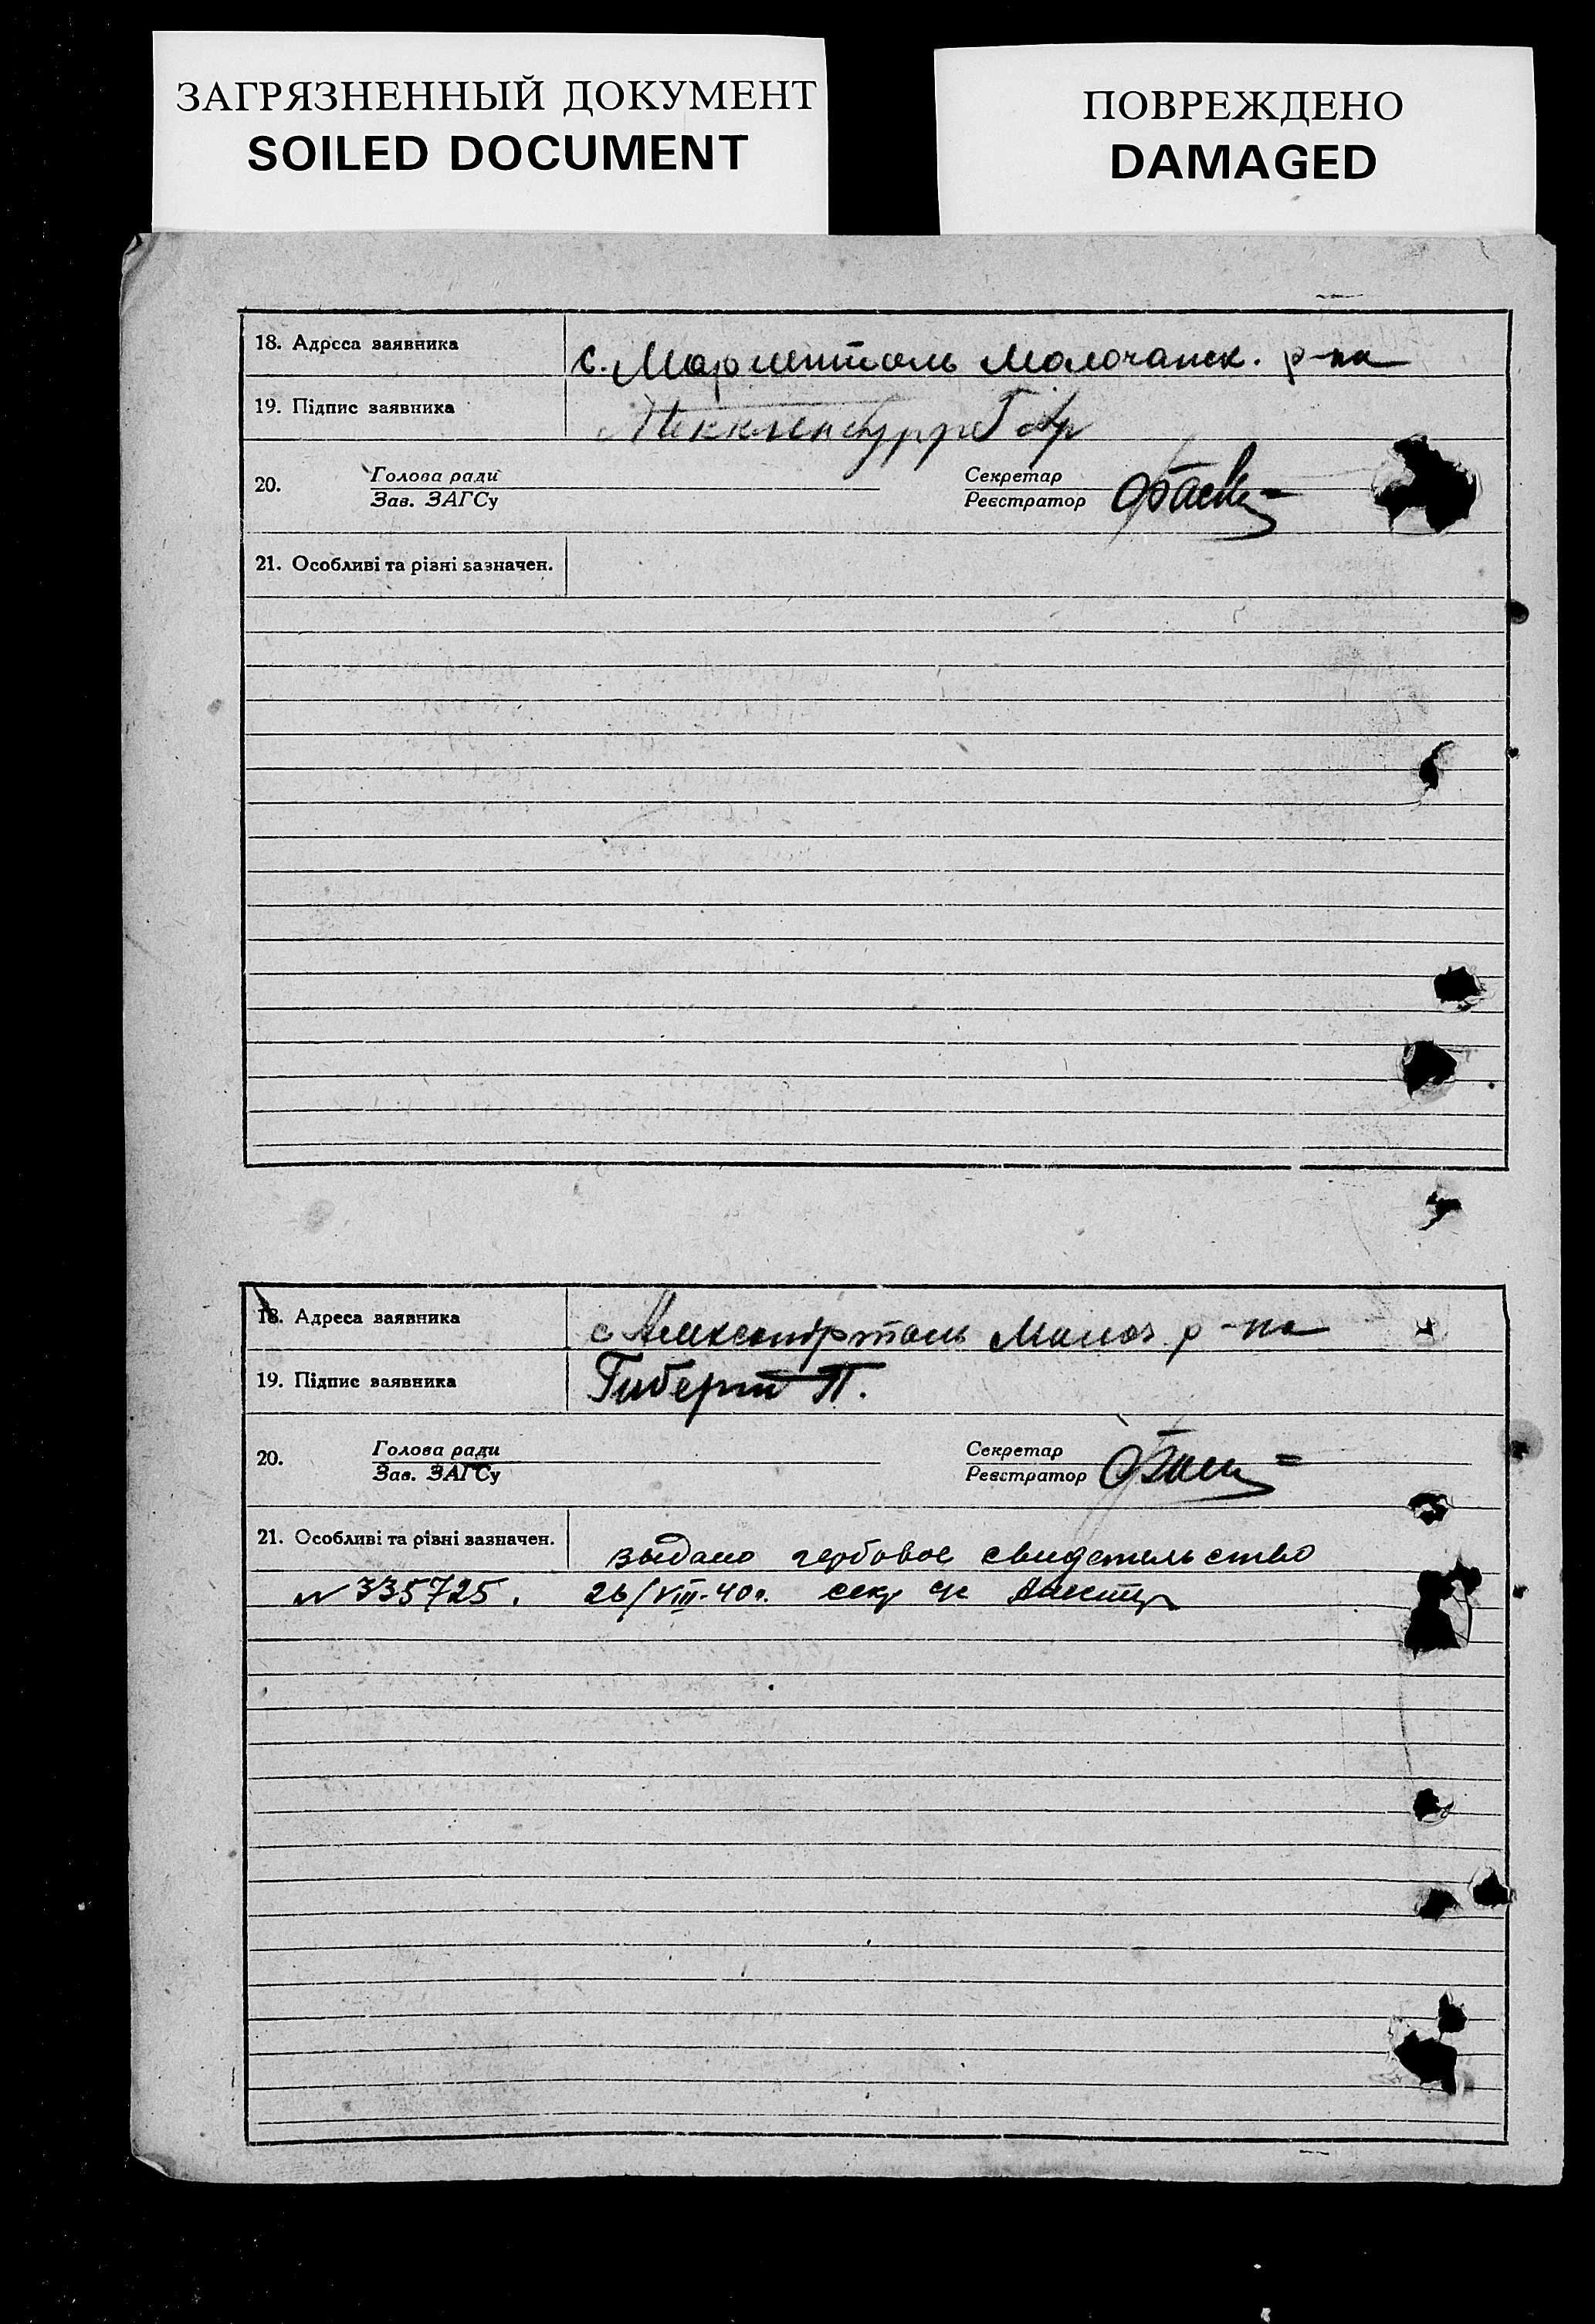 ЗАГРЯЗНЕННЫЙ ДОКУМЕНТ
SOILED DOCUMENT
ПОВРЕЖДЕНО
DAMAGED
18. Адреса заявника с. Мариенталь Молочанск. р-на
19. Підпис заявника
20. Голова ради Секретар
Зав. ЗАГСу Реєстратор
21. Особливі та різні зазначен.
18. Адреса заявника с Александрталь Молоч. р-на
19. Підпис заявника Гиберт П.
20. Голова ради Секретар
Зав. ЗАГСу Реєстратор
21. Особливі та різні зазначен. выдано гербовое свидетельство
N 335725. 26/VIII-40г. секр